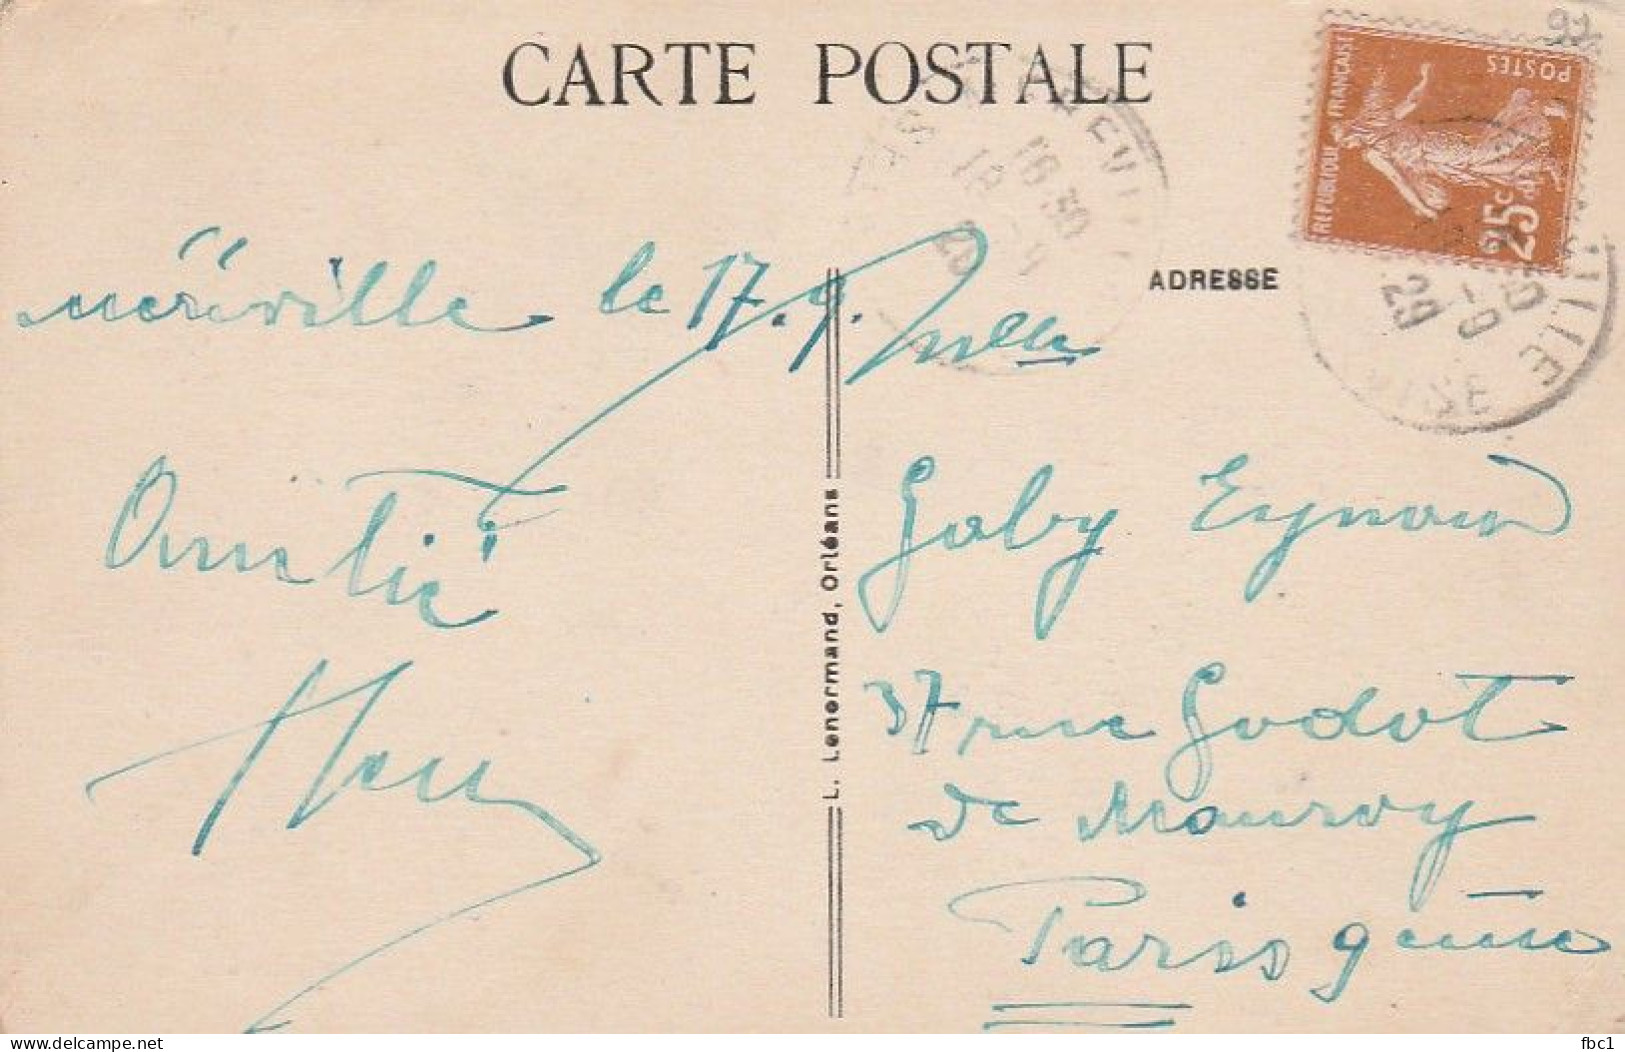 CARTE POSTALE
97
POSTES
REPUBLIQUE FRANÇAISE
25c
ADRESSE
16 30
18 -
29
méréville le 17.9.
Melle
Amitié
Gaby Eynard
37 rue Godot
de Mauroy
Paris 9eme
L. Lenormand, Orléans
delcampe.net
fbc1